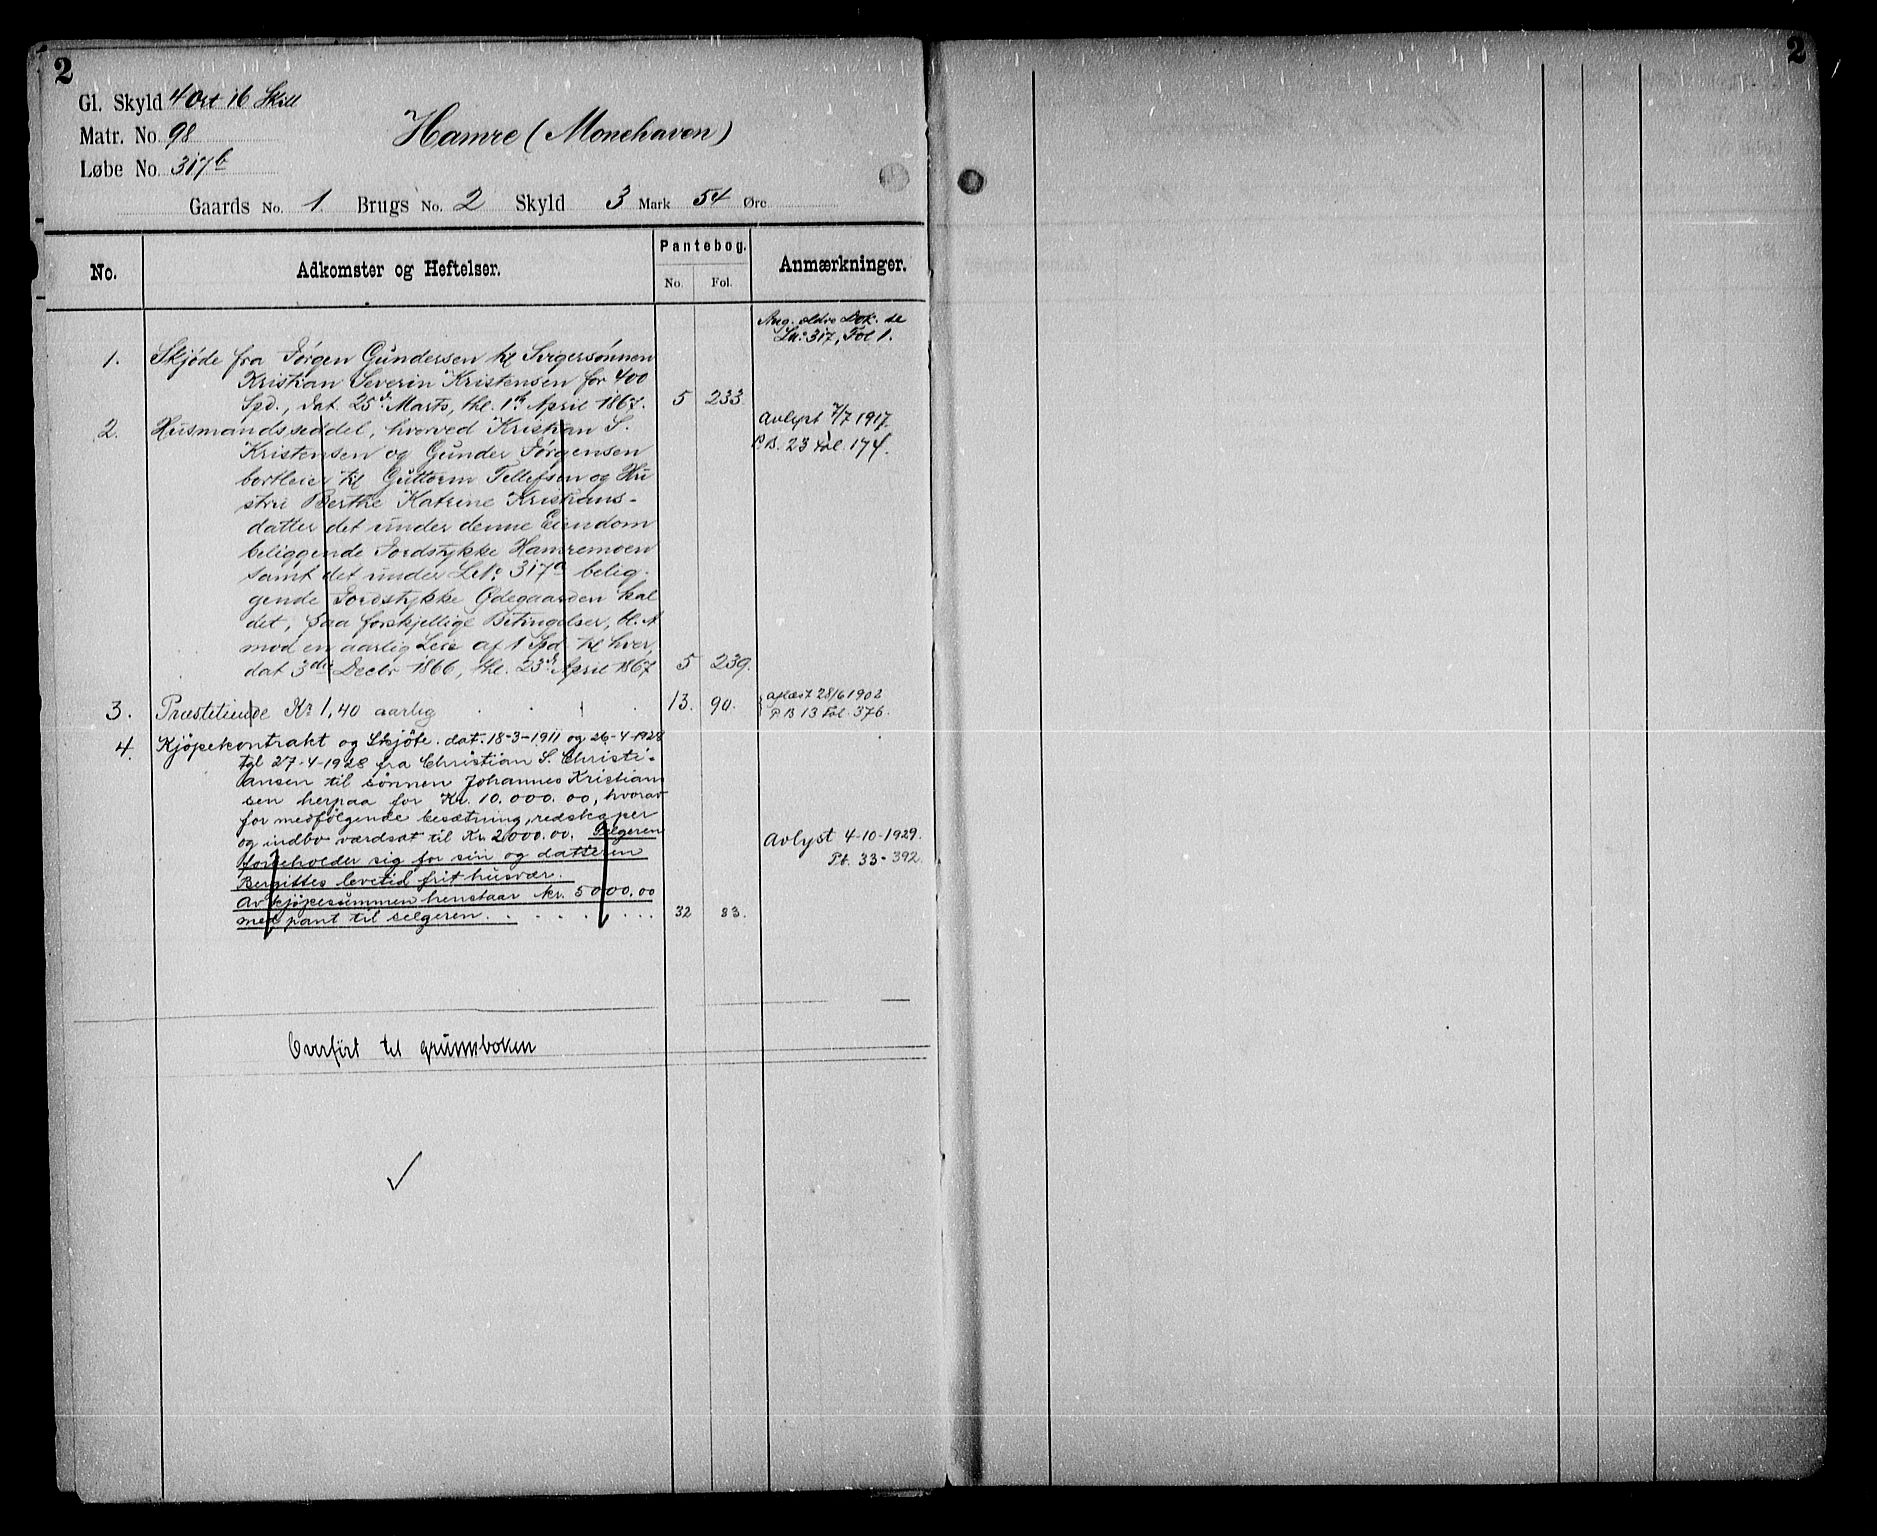 2
2
Gl. Skyld 4 Ort 16 Skill
Matr. No. 98
Løbe No. 317b
Hamre (Monehaven)
Gaards No. 1 Brugs No. 2 Skyld 3 Mark 54 Øre
No.
Adkomster og Heftelser.
Pantebog.
No. Fol.
Anmærkninger.
Ang. ældre Dok. se
Lnº 317, Fol 1.
1. Skjøde fra Jørgen Gundersen til Svigersønnen
Kristian Severin Kristensen for 400
Spd., dat. 25de Marts, thl. 1ste April 1867. 5 233
2. Husmandsseddel, hvorved Kristian S.
Kristensen og Gunder Jørgensen
bortleier til Guttorm Tellefsen og Hu
stru Berthe Katrine Kristians-
datter det under denne Eiendom
beliggende Jordstykke Hamremoen
samt det under Lnº 317a belig-
gende Jordstykke Ødegaarden kal
det, paa forskjellige Betingelser, bl. A
mod en aarlig Leie af 1 Spd til hver,
dat 3die Decbr 1866, thl. 23de April 1867 5 239.
Avlyst 7/7 1917
P.B. 23 Fol. 174.
3. Præstetiende Kr 1,40 aarlig . . . . 13. 90.
aflæst 28/6 1902
P B 13 Fol. 376.
4. Kjöpekontrakt og Skjöte. dat. 18-3-1911 og 26-4-1928
tgl 27-4-1928 fra Christian S. Christi-
ansen til sönnen Johannes Kristian
sen herpaa for Kr. 10.000.00, hvorav
for medfölgende besætning, redskaper
og indbo værdsat til Kr. 2000.00. Selgeren
forbeholder sig for sin og datteren
Bergittes levetid frit husvær.
Av kjöpesummen henstaar kr. 5000.00
med pant til selgeren. . . . . . . . 32 83.
Avlyst 4-10-1929.
Pb. 33-392.
Overført til grunnboken